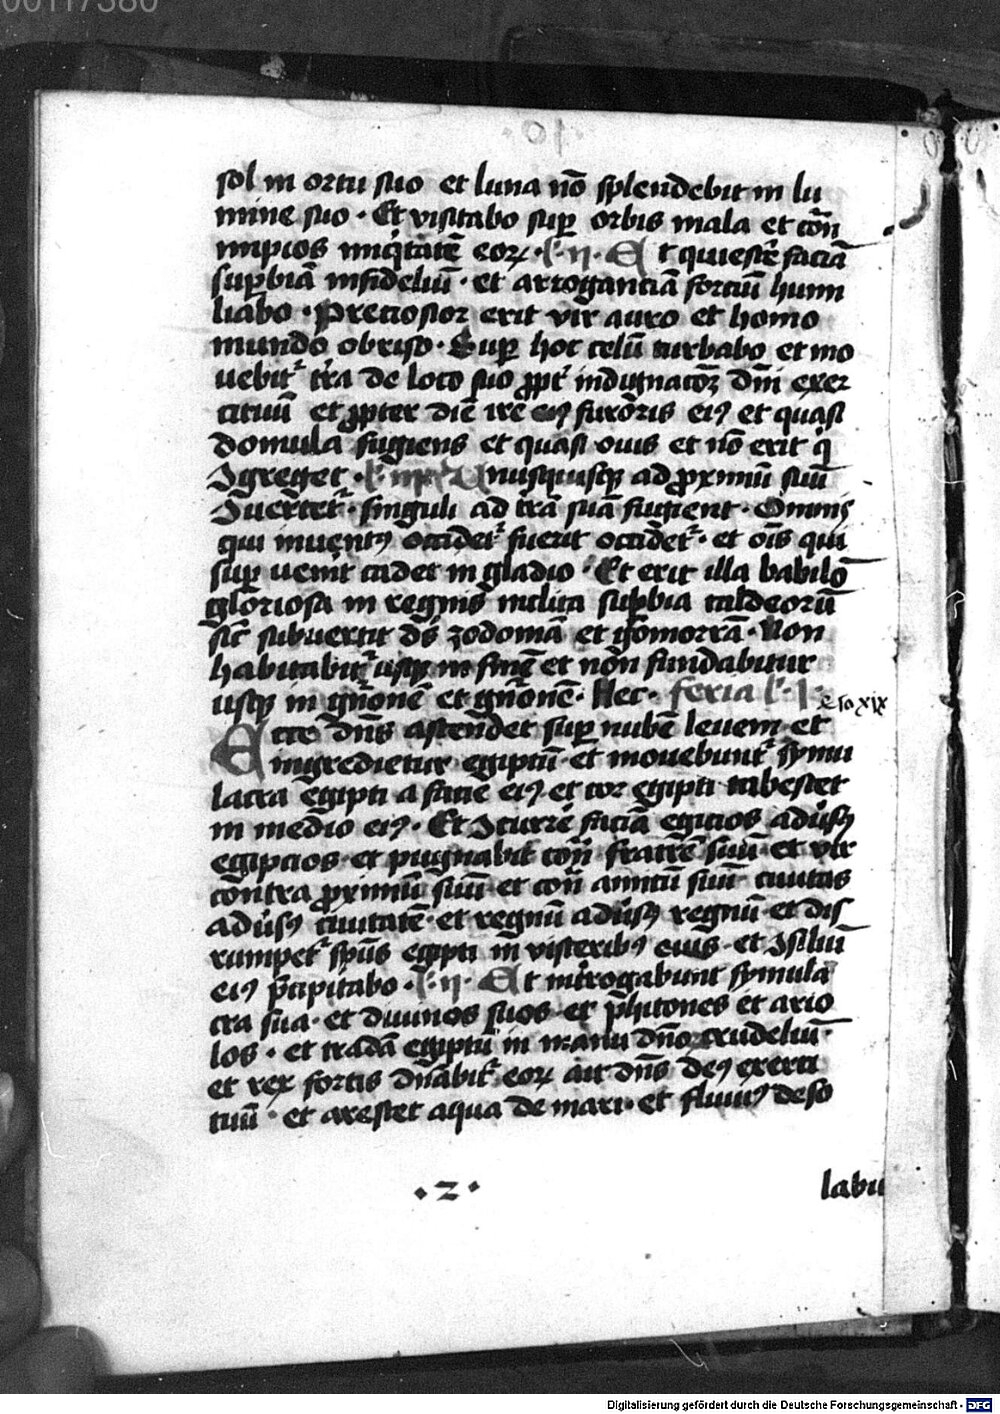 00117380
sol in ortu suo et luna nō splendebit in lu
mine suo · Et visitabo sup orbis mala et cōn
impios iniq̄tatē eoꝝ · l· ij · Et quiescē faciā
supbiā infideliū · et arrogantiā fortiū humi
liabo · Preciosior erit vir auro et homo
mundo obriso · Sup hoc celū turbabo et mo
uebit᷑ tr̄a de loco suo ꝓpt᷑ indignatōꝫ dn̄i exer
cituū et ꝓpter diē ire eiꝰ furoris eiꝰ et quasi
domula fugiens et quasi ouis et nō erit q̇
ꝯgreget · l· iij Unusquisqꝫ ad ꝓximū suū
ꝯuertet᷑ · singuli ad trā suā fugient · Omnis
qui inuentꝰ occidet᷑ fuerit occidet᷑ · et oīs qui
sup uenit cadet in gladio · Et erit illa babilō
gloriosa in regnis inclita supbia caldeorū
sic̄ subuertit ds̄ zodomā et gomorrā · Non
habitabit᷑ usqꝫ in finē et non fundabitur
usqꝫ in gn̄onē et gn̄onē · Hec · feria l· i ·
Eso xix
Ecce dn̄s ascendet sup nubē leuem et
ingredietur egiptū · et mouebunt᷑ symu
lacra egipti a facie eiꝰ et cor egipti tabescet
in medio eiꝰ · Et ꝯcurrē faciā egicios adūsꝰ
egipcios et pugnabit cōn̄ fratrē suū et vir
contra ꝓximū suū et cōn̄ amicū suū ciuitas
adūsꝰ ciuitatē · et regnū adūsꝰ regnū · et dis
rumpet᷑ sp̄us egipti in visceribꝰ euis · et ꝯsiliū
eiꝰ p̄cipitabo · l· ij · Et int̄rogabunt symula
cra sua · et diuinos suos et phitones et ario
los · et tradā egiptū in manu dn̄o crudeliū ·
et rex fortis dn̄abit᷑ eoꝝ ait dn̄s deꝰ exerci
tuū · et arescet aqua de mari · et fluuiꝰ deso
· 2 ·
labit
Digitalisierung gefördert durch die Deutsche Forschungsgemeinschaft - DFG